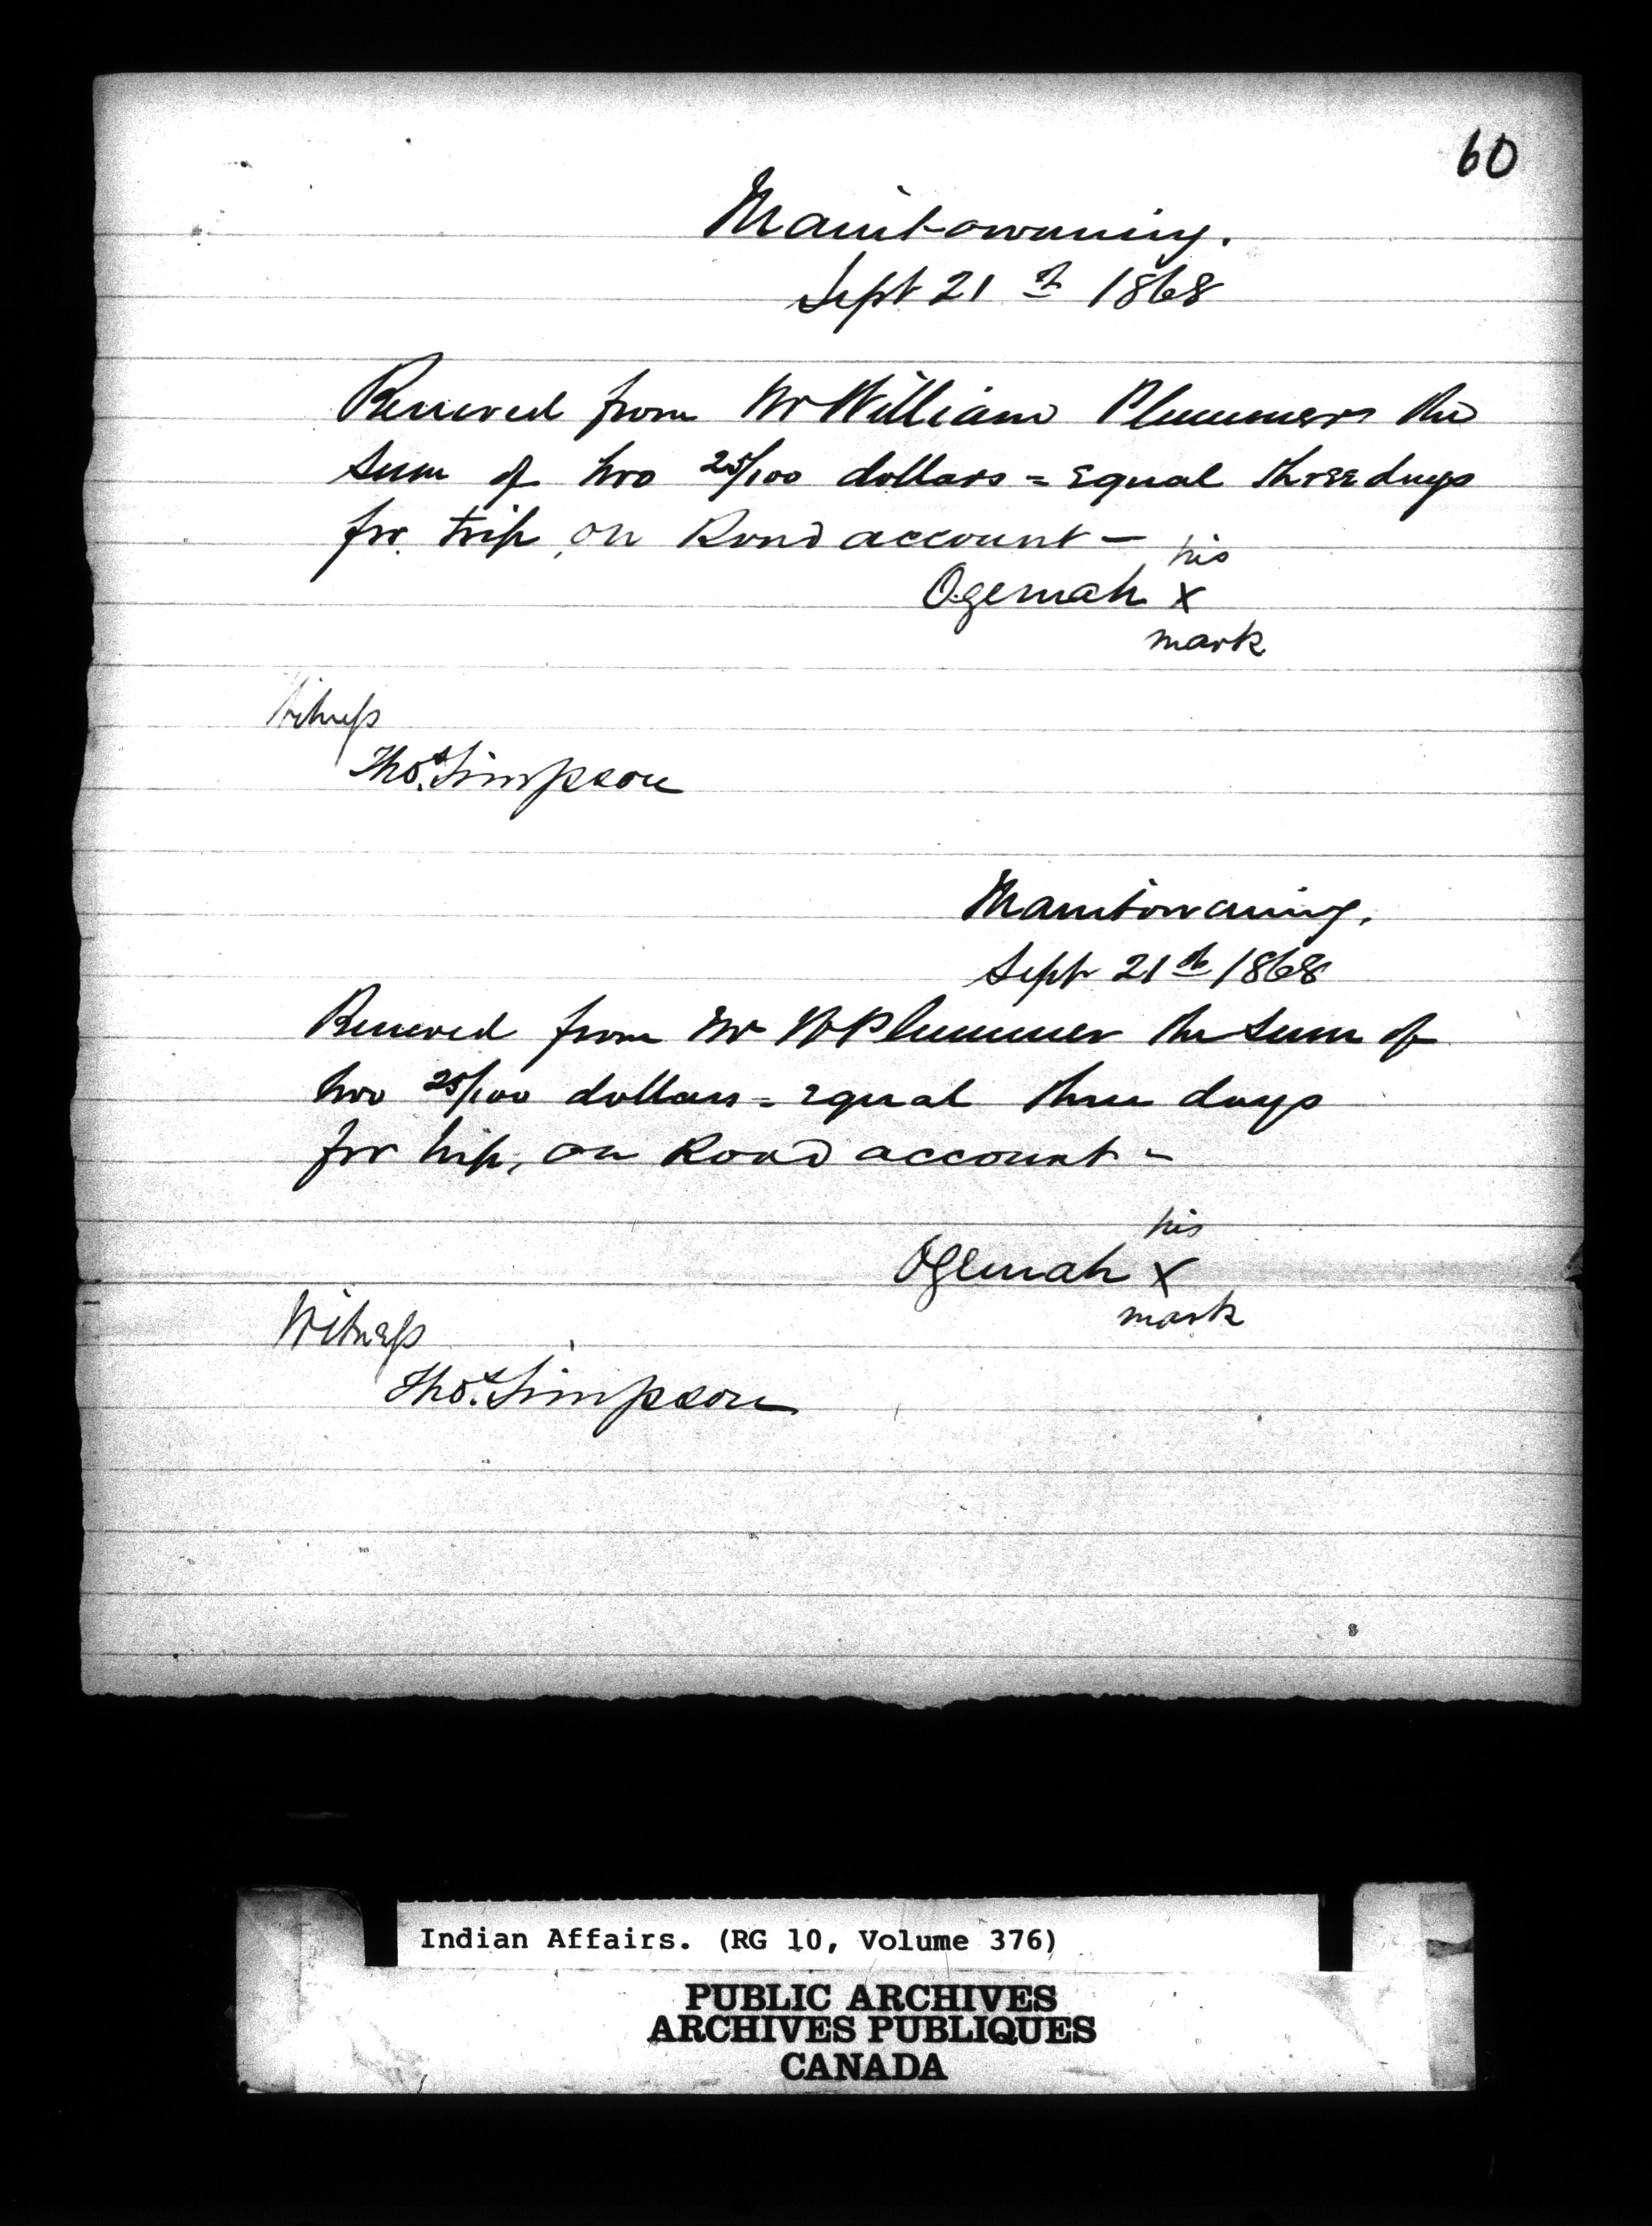 60
Manitowaning.
Sept 21st 1868
Received from Mr William Plummer the
sum of two 25/100 dollars = Equal three days
for trip, on Road account —
his
Ogemah x
mark
Witness
Thos. Simpson
Manitowaning,
Sept 21st 1868
Received from Mr W Plummer the sum of
two 25/100 dollars = Equal three days
for trip, on Road account -
his
Ogemah x
mark
Witness
Thos. Simpson
Indian Affairs. (RG 10, Volume 376)
PUBLIC ARCHIVES
ARCHIVES PUBLIQUES
CANADA